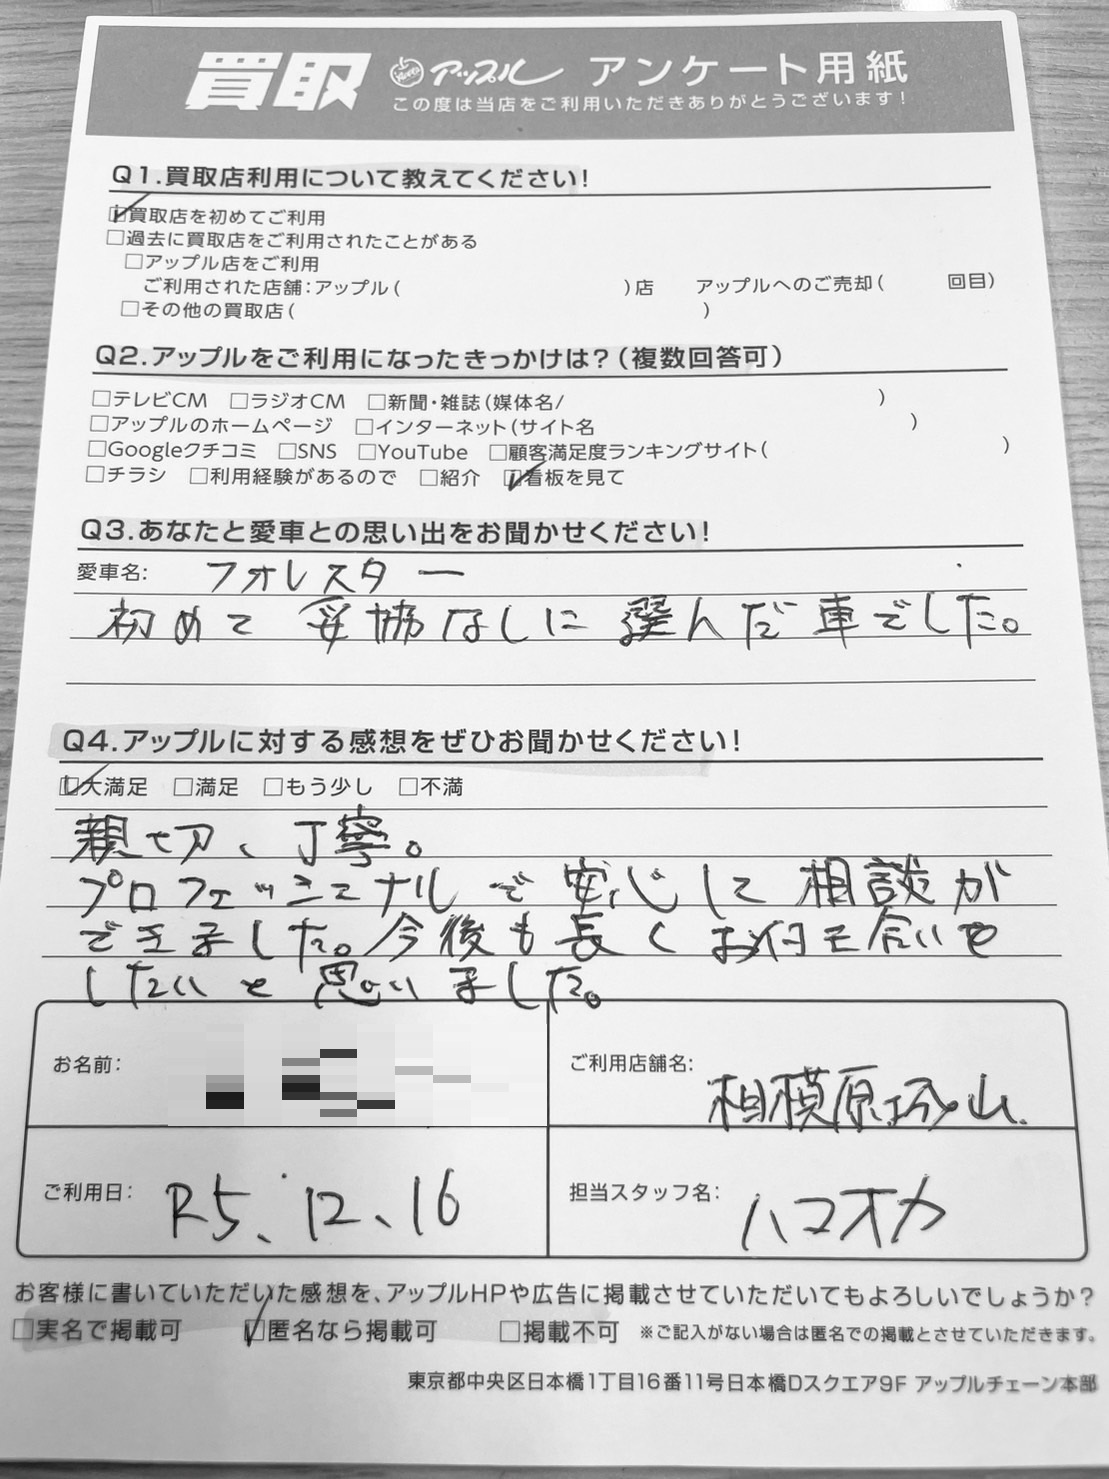 買取 アップル アンケート用紙
この度は当店をご利用いただきありがとうございます！
Q1.買取店利用について教えてください！
☑買取店を初めてご利用
□過去に買取店をご利用されたことがある
□アップル店をご利用
ご利用された店舗：アップル（　　　）店　アップルへのご売却（　　回目）
□その他の買取店（　　　）
Q2.アップルをご利用になったきっかけは？（複数回答可）
□テレビCM □ラジオCM □新聞・雑誌（媒体名/　　　）
□アップルのホームページ □インターネット（サイト名　　　）
□Googleクチコミ □SNS □YouTube □顧客満足度ランキングサイト（　　　）
□チラシ □利用経験があるので □紹介 ☑看板を見て
Q3.あなたと愛車との思い出をお聞かせください！
愛車名： フォレスター
初めて妥協なしに選んだ車でした。
Q4.アップルに対する感想をぜひお聞かせください！
☑大満足 □満足 □もう少し □不満
親切、丁寧。
プロフェッショナルで安心して相談が
できました。今後も長くお付き合いを
したいと思いました。
お名前：
ご利用店舗名： 相模原
ご利用日： R5、12、16
担当スタッフ名： ハマオカ
お客様に書いていただいた感想を、アップルHPや広告に掲載させていただいてもよろしいでしょうか？
□実名で掲載可 ☑匿名なら掲載可 □掲載不可 ※ご記入がない場合は匿名での掲載とさせていただきます。
東京都中央区日本橋1丁目16番11号日本橋Dスクエア9F アップルチェーン本部